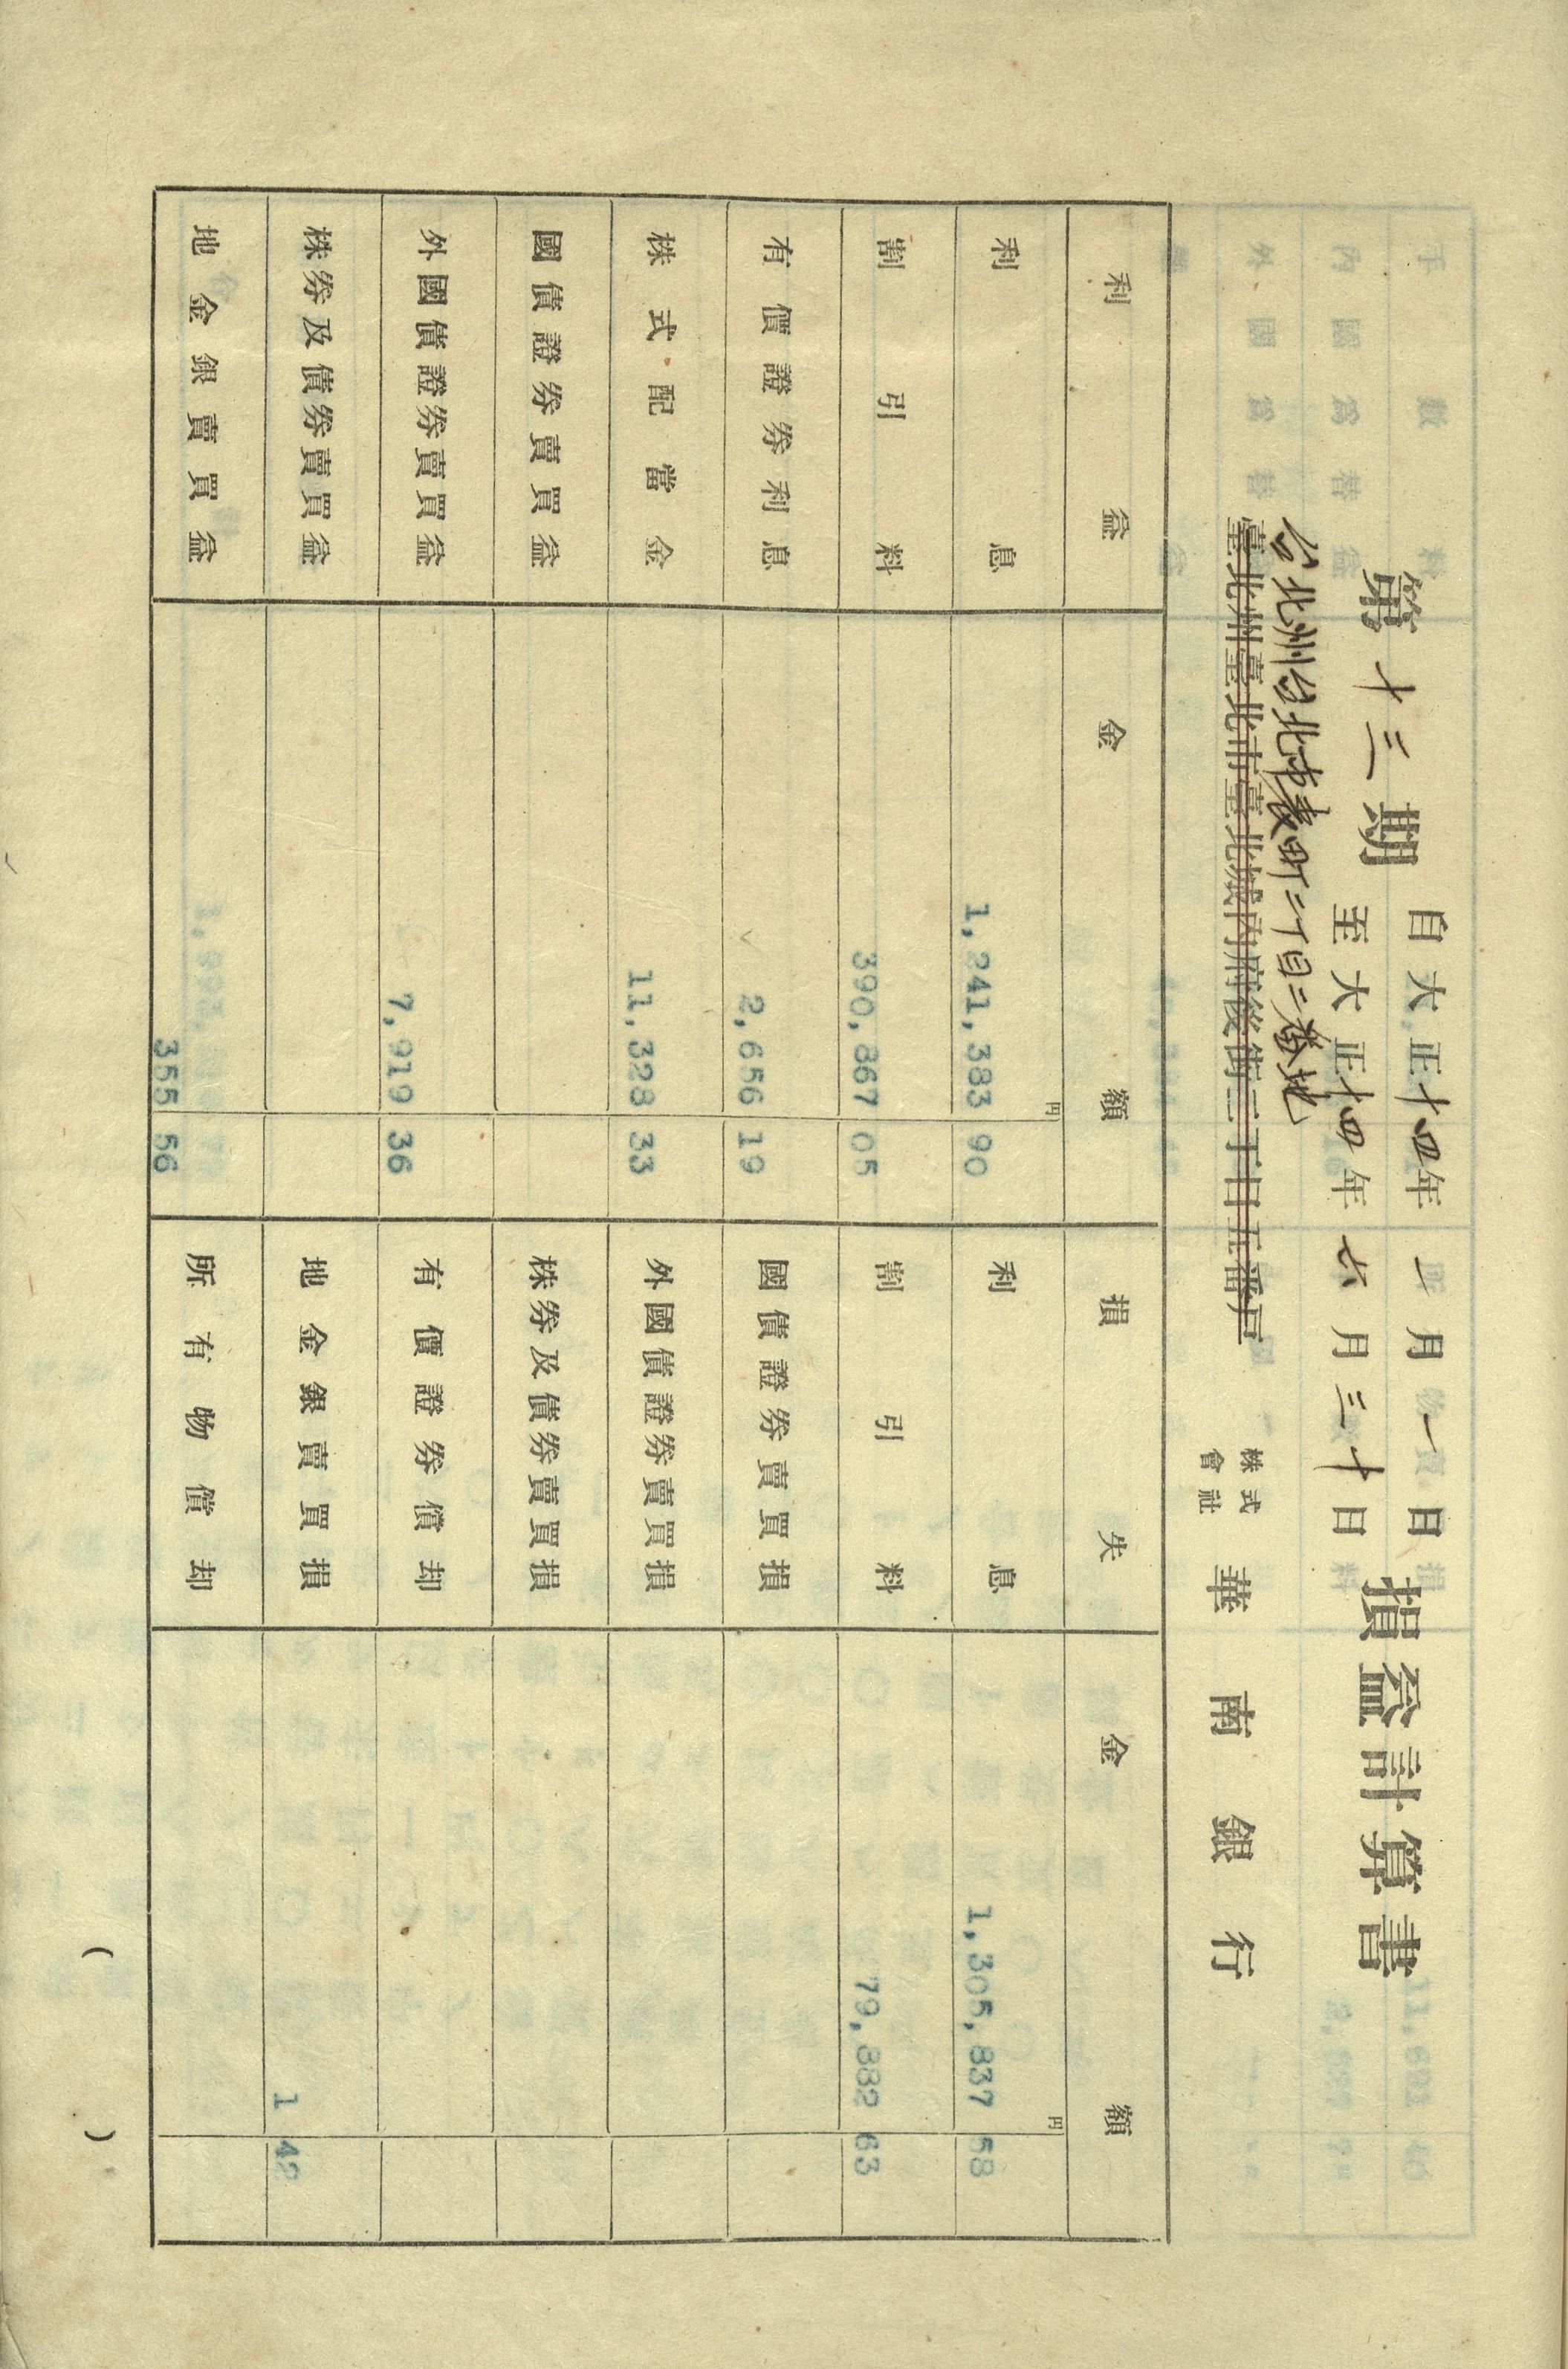 第十三期 自大正十四年一月一日 至大正十四年六月三十日 損益計算書
台北州台北市表町二丁目二番地
臺北州臺北市臺北城內府後街二丁目五番戶
株式會社 華南銀行
利益 金額 損失 金額
円 円
利息 1,241,383 90 利息 1,305,837 58
割引料 390,867 05 割引料 79,882 63
有價證券利息 2,656 19 國債證券賣買損
株式配當金 11,328 33 外國債證券賣買損
國債證券賣買益 株券及債券賣買損
外國債證券賣買益 7,919 36 有價證券償却
株券及債券賣買益 地金銀賣買損 1 42
地金銀賣買益 355 56 所有物償却
( )